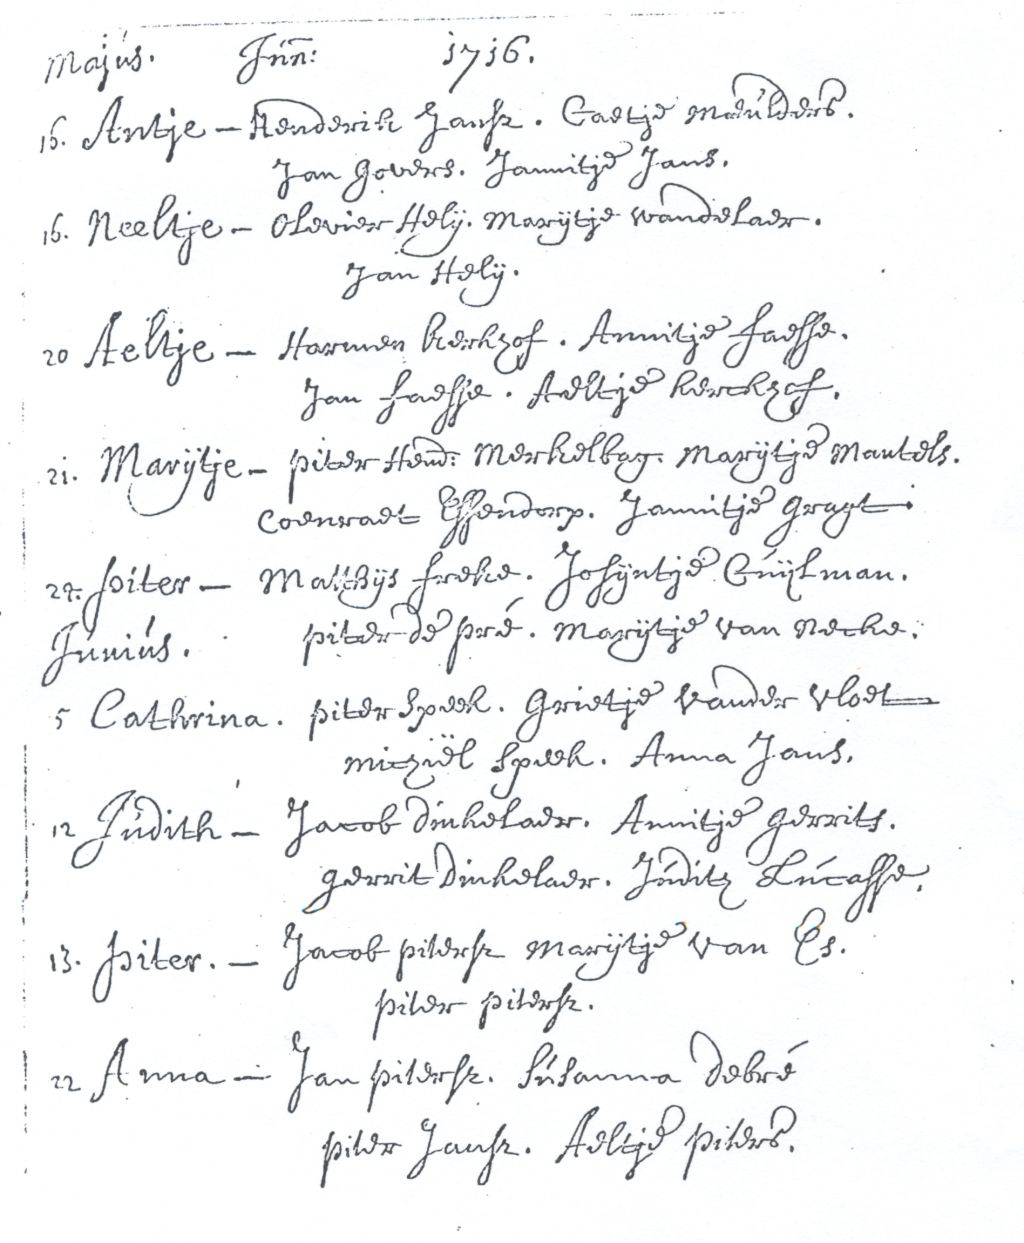 Majús. Jún: 1716.
16. Antje - Henderik Jansz. Caetje Maúlders.
Jan Govers. Jannitje Jans.
16. Neeltje - Olevier Helÿ. Marÿtje vandelaer.
Jan Helÿ.
20 Aeltje - Harmen kerkhof. Annitje faesse.
Jan faesse. Aeltje kerckhof.
21. Marÿtje - piter Hend: Merkelbag. Marÿtje Mantels.
Coenraet Essendorp. Jannitje Gragt.
piter - Matthÿs freke. Josÿntje Cúÿlman.
Júniús. piter de pré. Marÿtje van Necke.
5 Cathrina. piter Speek. Grietje vander vloet
Michiël Speek. Anna Jans.
12 Júdith - Jacob Dinkelaer. Annitje gerrits.
gerrit Dinkelaer. Júdith Lúcasse.
13. piter. - Jacob pitersz Marÿtje van Es.
piter pitersz.
22 Anna - Jan pitersz. Súsanna Debré
piter Jansz. Aeltje piters.